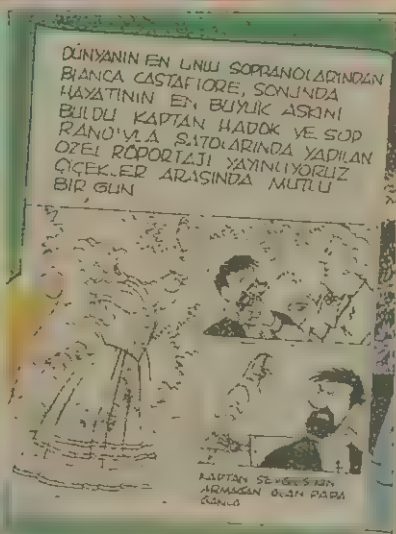 DÜNYANIN EN ÜNLÜ SOPRANOLARINDAN
BIANCA CASTAFIORE, SONUNDA
HAYATININ EN BÜYÜK AŞKINI
BULDU KAPTAN HADOK VE SOP
RANO'YLA ŞATOLARINDA YAPILAN
ÖZEL RÖPORTAJI YAYINLIYORUZ
ÇİÇEKLER ARASINDA MUTLU
BİR GÜN
KAPTAN
ARMAĞANI OLAN PAPA
ĞANLA